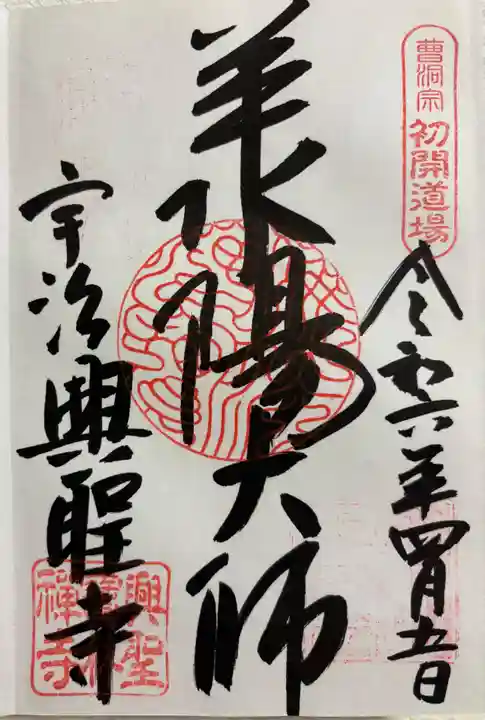 曹洞宗 初開道場
令和六年四月五日
承陽大師
宇治興聖寺
興聖
禪寺